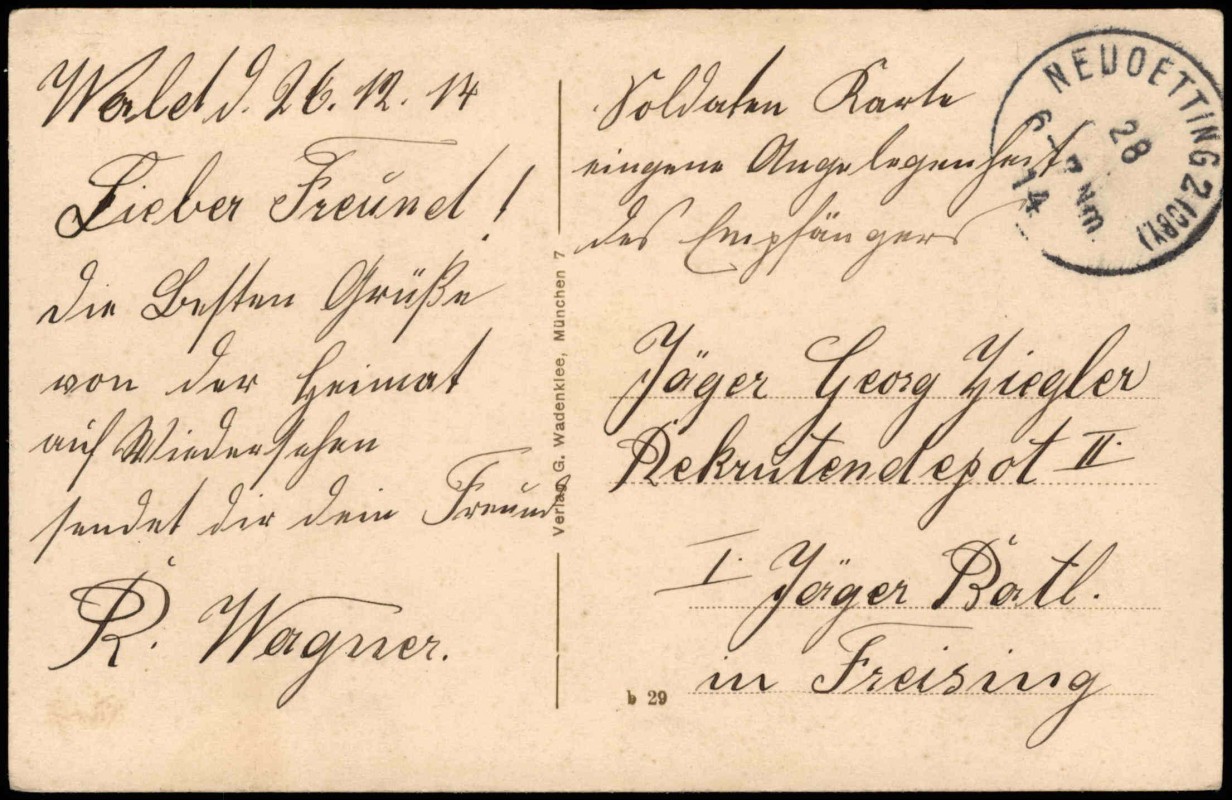 Wald d. 26. 12. 14
Lieber Freund!
die Besten Grüße
von der Heimat
auf Wiedersehen
sendet dir dein Freund
R. Wagner.
Verlag G. Wadenklee, München 7
b 29
Soldaten Karte
eingene Angelegenheit
des Empfängers
NEUOETTING 2 (OBY.)
28
6-7 Nm
14
Jäger Georg Ziegler
Rekrutendepot II.
I. Jäger Batl.
in Freising